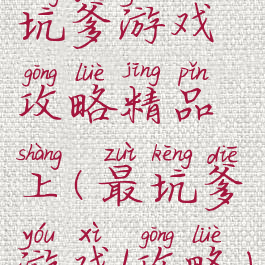 坑爹游戏
gōng lüè jīng pǐn
攻略精品
shàng zuì kēng diē
上(最坑爹
yóu xì gōng lüè
游戏(攻略)